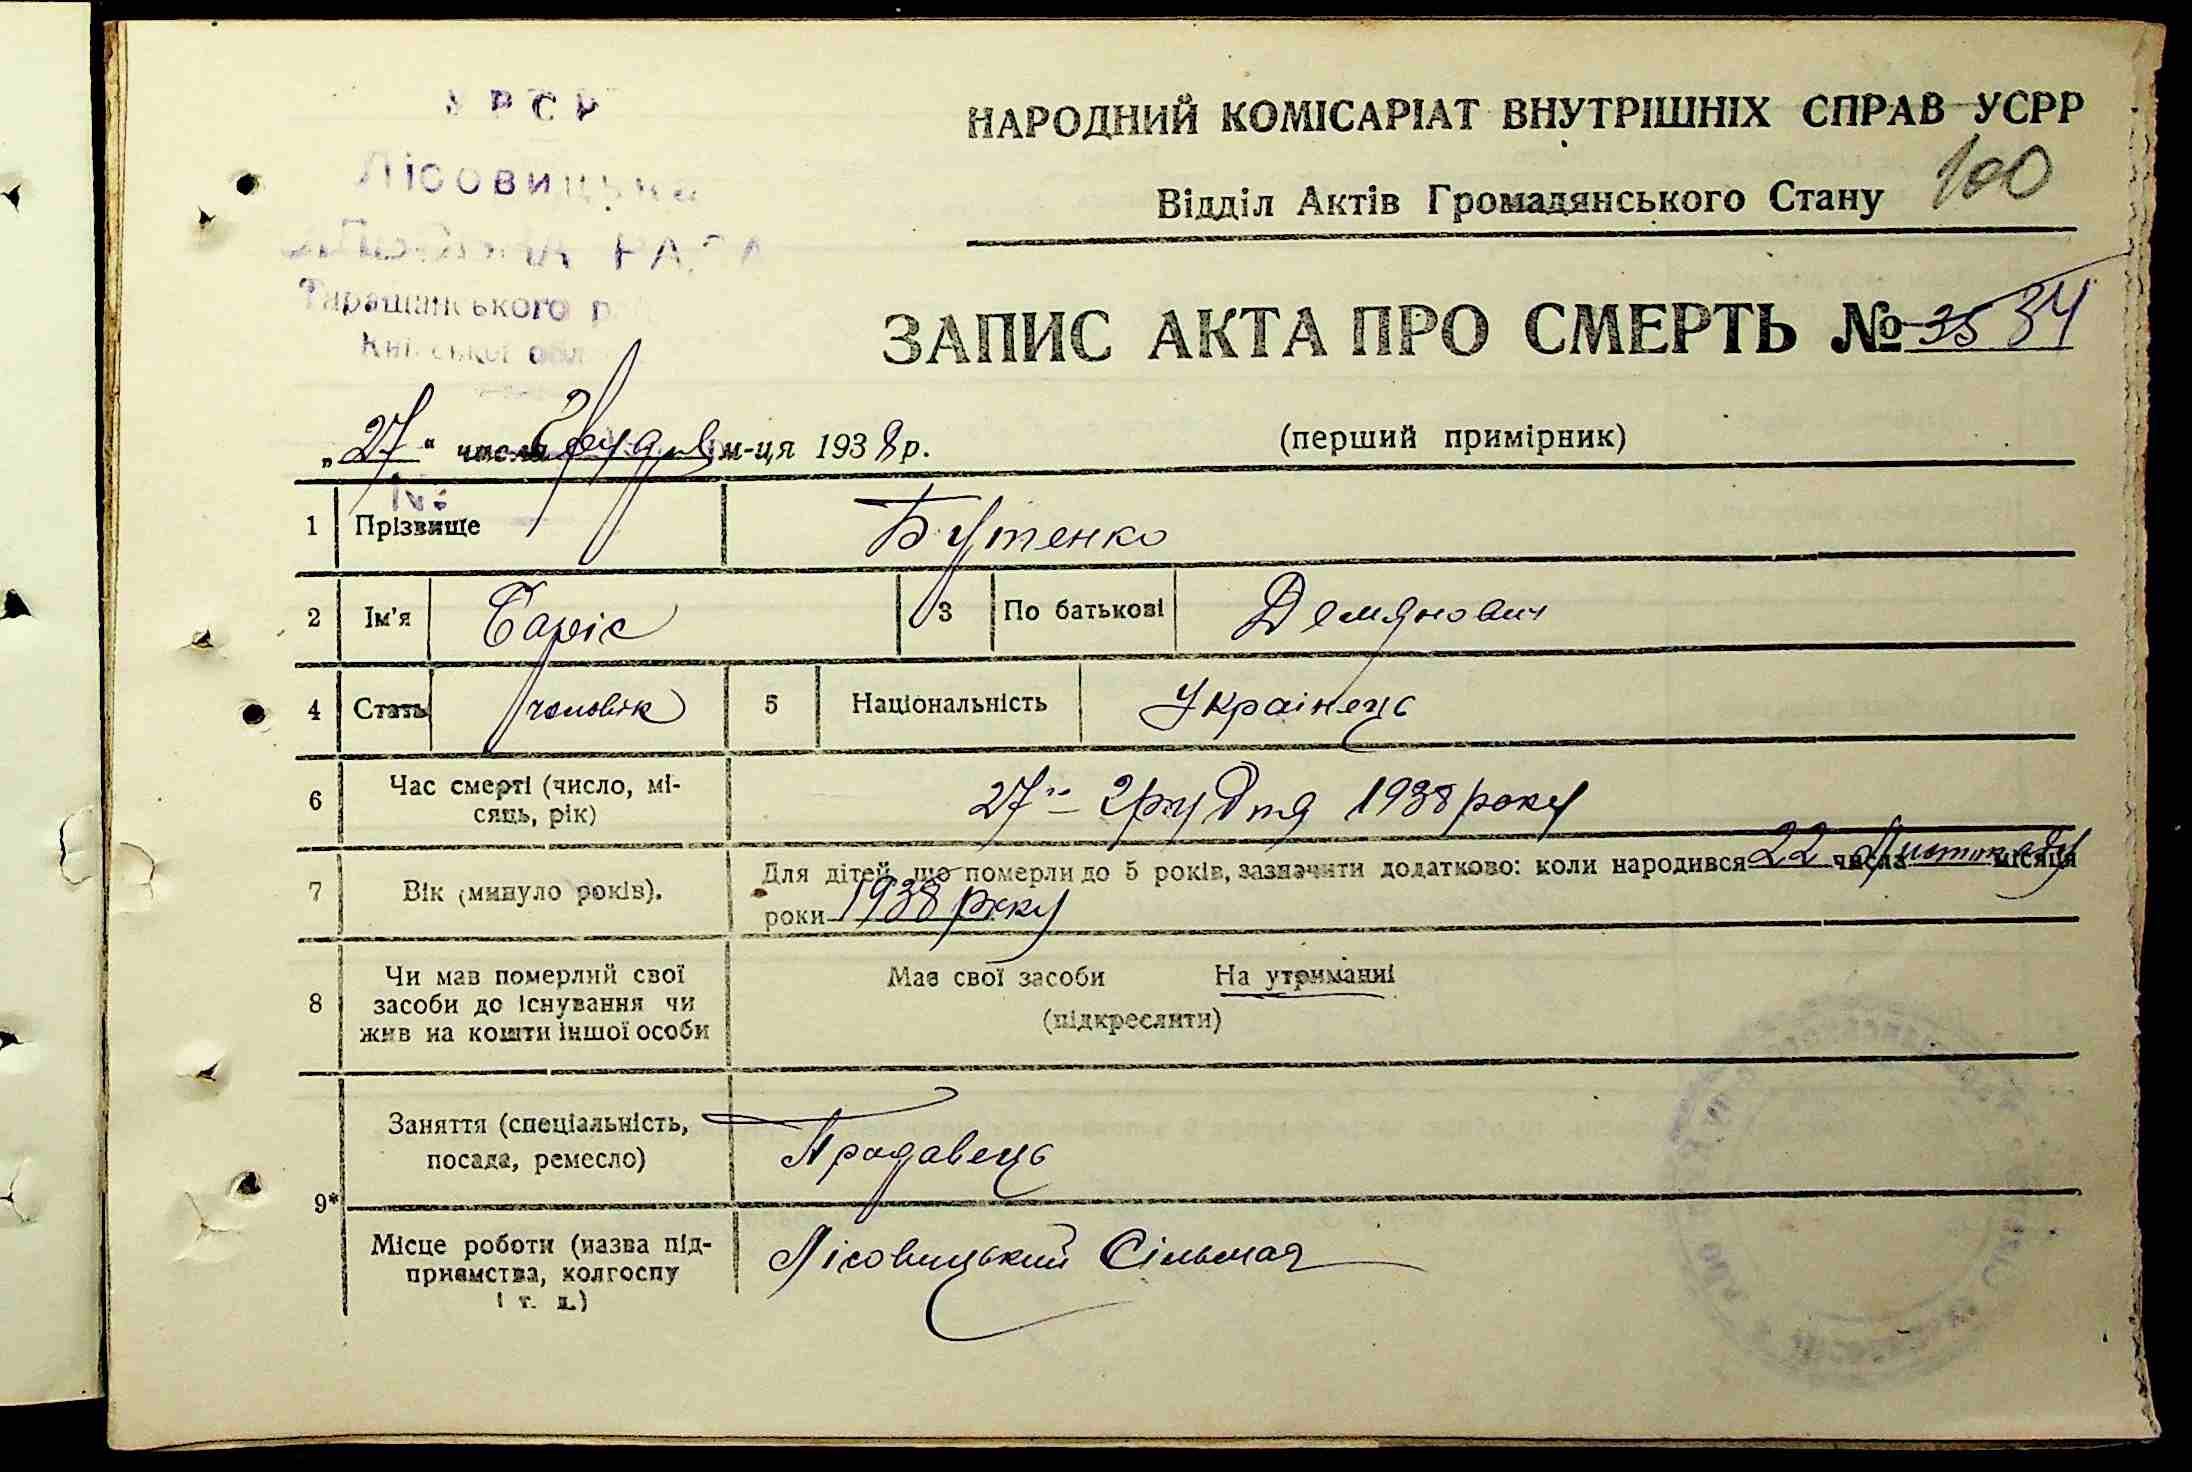 УРСР
Лісовицька
РАДА
Таращанського
Київської обл
НАРОДНИЙ КОМІСАРІАТ ВНУТРІШНІХ СПРАВ УСРР
100
Відділ Актів Громадянського Стану
ЗАПИС АКТА ПРО СМЕРТЬ № 35 34
„27“ числа Грудня м-ця 1938 р.
(перший примірник)
№
1 Прізвище Бутенко
2 Ім'я Баріс 3 По батькові Демянович
4 Стать чоловік 5 Національність Украінець
6 Час смерті (число, мі-
сяць, рік) 27го грудня 1938 року
7 Вік (минуло років). Для дітей, що померли до 5 років, зазначити додатково: коли народився 22 числа Листопаду місяця
роки 1938 року
8 Чи мав померлий свої
засоби до існування чи
жив на кошти іншої особи
Має свої засоби На утриманні
(підкреслити)
9* Заняття (спеціальність,
посада, ремесло) Прадавець
Місце роботи (назва під-
приємства, колгоспу
і т. д.)
Лісовицький Сільмаг